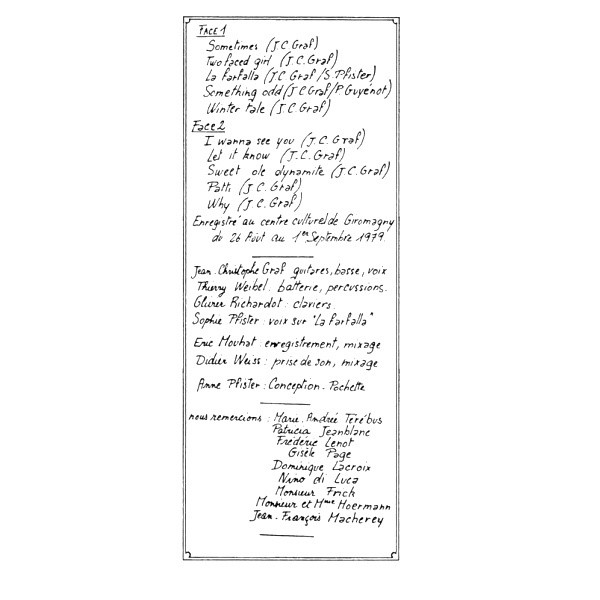 FACE 1
Sometimes (J.C Graf)
Two faced girl (J.C. Graf)
La farfalla (J.C Graf / S. Pfister)
Something odd (J C Graf / P. Guyénot)
Winter tale (J.C Graf)
Face 2
I wanna see you (J.C. Graf)
Let it know (J.C. Graf)
Sweet ole dynamite (J.C. Graf)
Patti (J.C. Graf)
Why (J.C. Graf)
Enregistré au centre culturel de Giromagny
du 26 Août au 1er Septembre 1979.
Jean-Christophe Graf guitares, basse, voix
Thierry Weibel. batterie, percussions.
Olivier Richardot: claviers
Sophie Pfister: voix sur "La farfalla"
Eric Mouhat: enregistrement, mixage
Didier Weiss: prise de son, mixage
Anne Pfister: Conception-Pochette
nous remercions: Marie-Andrée Térébus
Patricia Jeanblanc
Frédéric Lenot
Gisèle Page
Dominique Lacroix
Nino di Luca
Monsieur Frick
Monsieur et Mme Hoermann
Jean-François Macherey